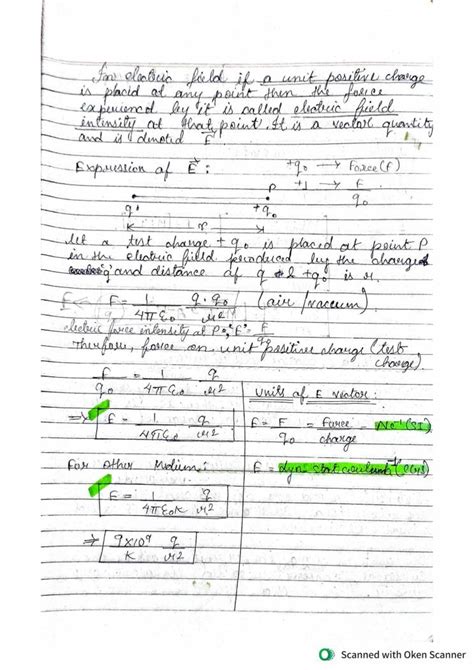 In electric field if a unit positive charge
is placid at any point then the force
experienced by it is called electric field
intensity at that point. It is a vector quantity
and is denoted E⃗.
Expression of E⃗ :
+q₀ → Force(F)
+1 → F/q₀
q P +q₀
r
let a test charge + q₀ is placed at point P
in the electric field produced by the charge
'q' and distance of q & +q₀ is r.
F = 1/4πε₀ q.q₀/r² (air/vaccum)
electric force intensity at P F/q₀
Therfore, force on unit positive charge (test
charge).
F/q₀ = 1/4πε₀ q/r²
⇒ E = 1/4πε₀ q/r²
For other Medium:
E = 1/4πε₀K q/r²
⇒ 9×10⁹/K q/r²
Units of E vector:
E = F/q₀ = Force/charge = NC⁻¹(SI)
E = dyn statcoulumb⁻¹(CGS)
Scanned with Oken Scanner